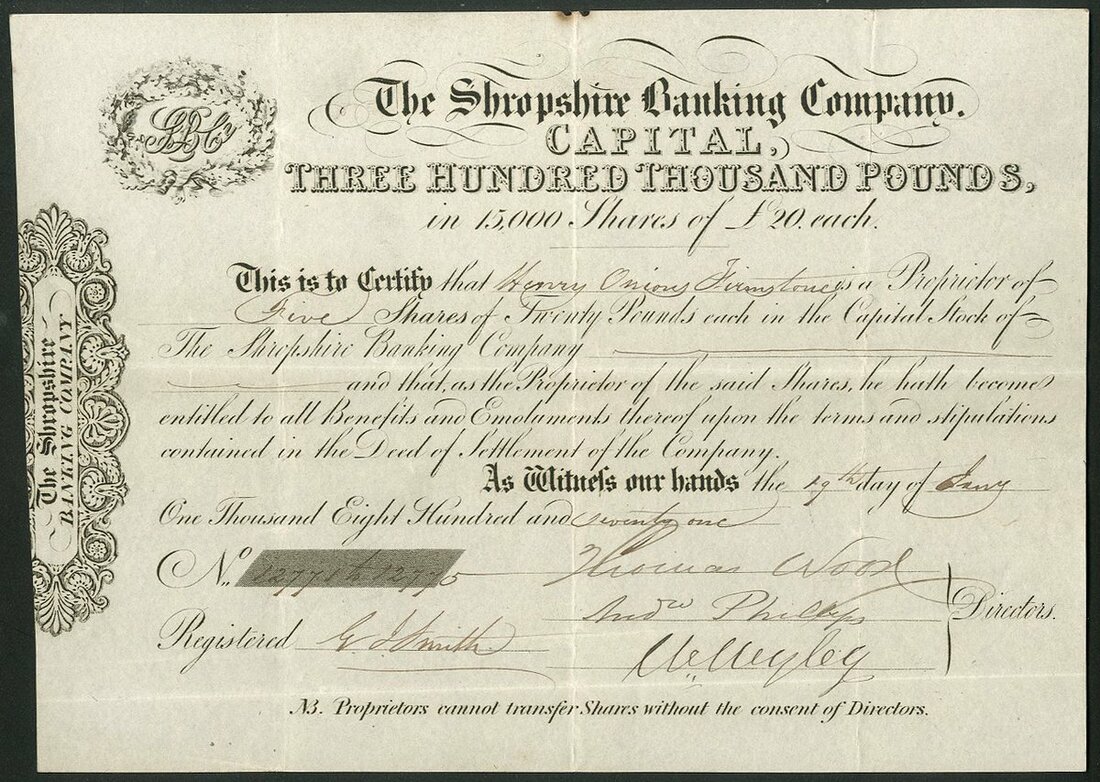 SBCy
The Shropshire Banking Company.
CAPITAL,
THREE HUNDRED THOUSAND POUNDS,
in 15,000 Shares of £20. each.
This is to Certify that Henry Onions Firmstone is a Proprietor of
Five Shares of Twenty Pounds each in the Capital Stock of
The Shropshire Banking Company
and that, as the Proprietor of the said Shares, he hath become
entitled to all Benefits and Emoluments thereof upon the terms and stipulations
contained in the Deed of Settlement of the Company.
As Witness our hands the 19th day of Jany
One Thousand Eight Hundred and seventy one
No. 12771 to 12775
Thomas Wood
Andw Phillips
Directors.
Registered
Smith
NB. Proprietors cannot transfer Shares without the consent of Directors.
The Shropshire
BANKING COMPANY